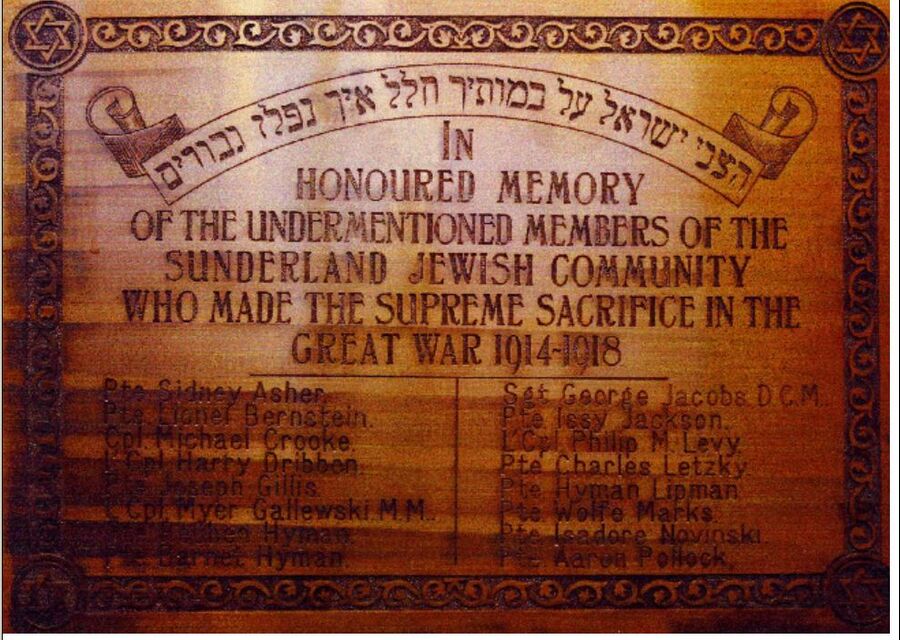 הצבי ישראל על במותיך חלל איך נפלו גבורים
IN
HONOURED MEMORY
OF THE UNDERMENTIONED MEMBERS OF THE
SUNDERLAND JEWISH COMMUNITY
WHO MADE THE SUPREME SACRIFICE IN THE
GREAT WAR 1914-1918
Pte Sidney Asher.
Pte Lionel Bernstein.
Cpl Michael Crooke.
L'Cpl Harry Dribben.
Pte Joseph Gillis.
L'Cpl Myer Gallewski M.M.
Hyman.
Pte Barnet Hyman.
Sgt George Jacobs D.C.M.
Pte Issy Jackson.
L'Cpl Philip M. Levy.
Pte Charles Letzky.
Pte Hyman Lipman
Pte Wolfe Marks.
Pte Isadore Novinski.
Pte Aaron Pollock.